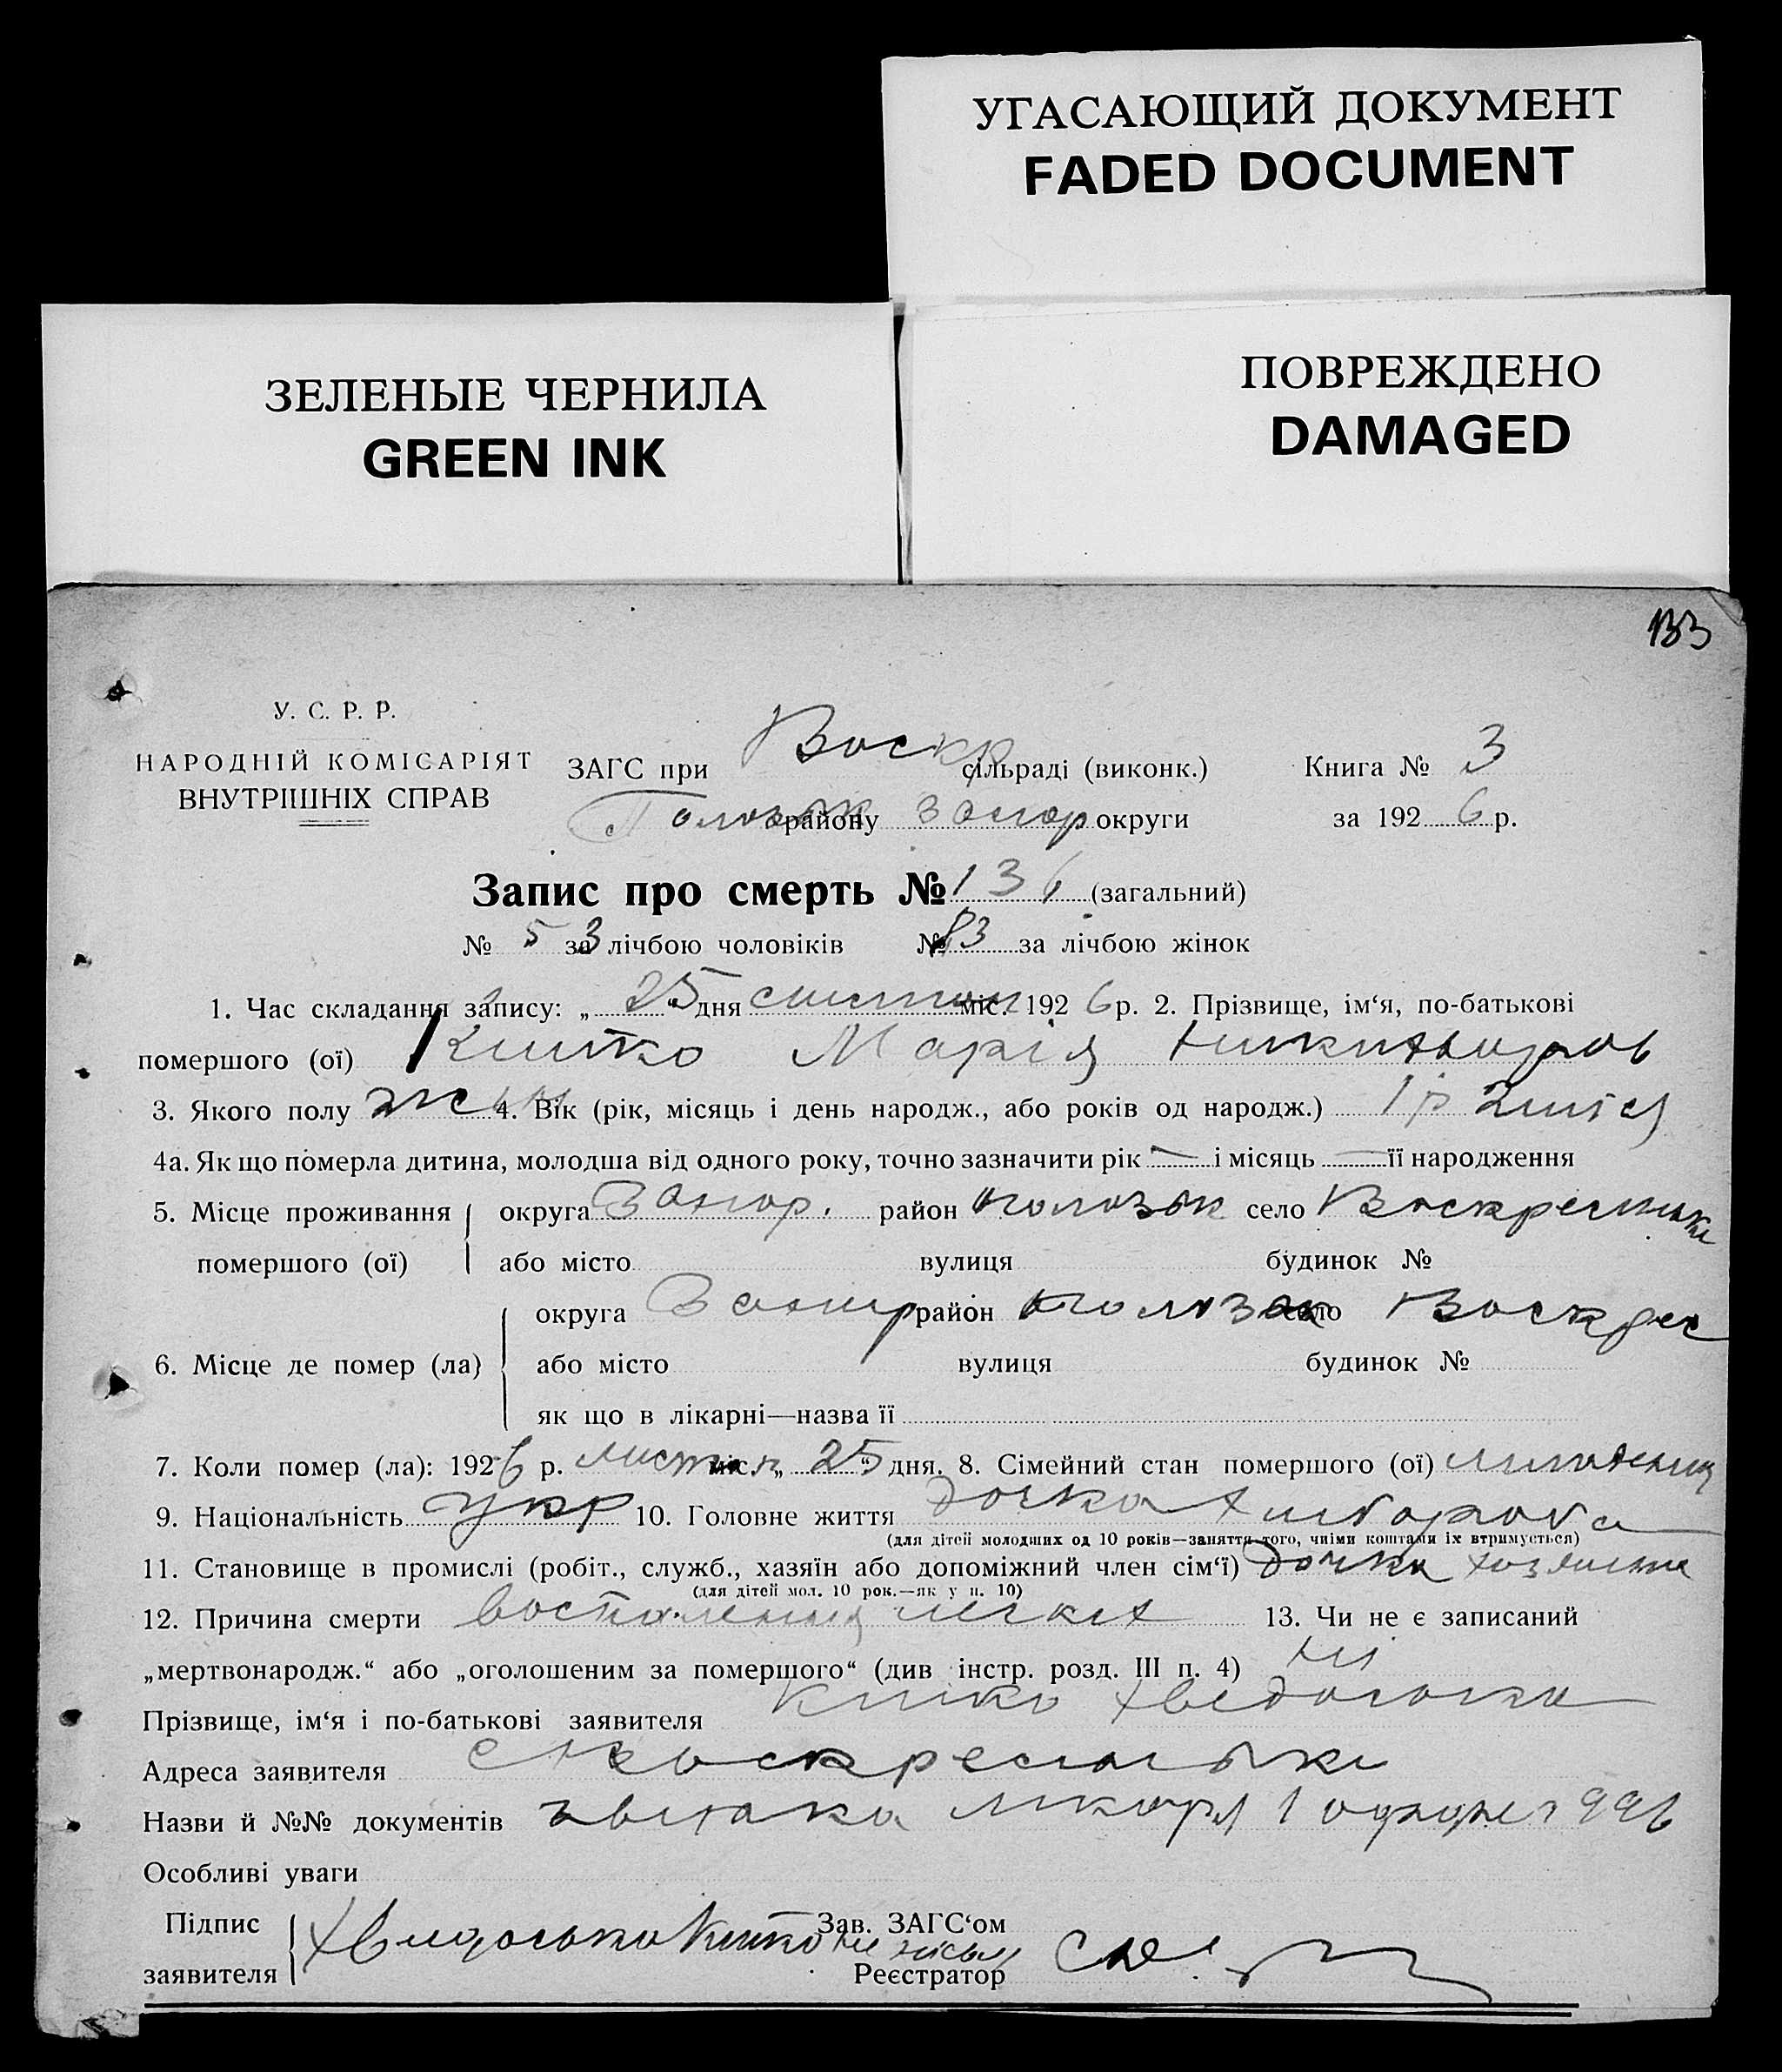 УГАСАЮЩИЙ ДОКУМЕНТ
FADED DOCUMENT
ЗЕЛЕНЫЕ ЧЕРНИЛА
GREEN INK
ПОВРЕЖДЕНО
DAMAGED
133
У. С. Р. Р.
НАРОДНІЙ КОМІСАРІЯТ
ВНУТРІШНІХ СПРАВ
ЗАГС при Воскр сільраді (виконк.) Книга № 3
району Запор округи за 1926 р.
Запис про смерть № 136 (загальний)
№ 53 за лічбою чоловіків № 83 за лічбою жінок
1. Час складання запису: „25“ дня міс. 1926 р. 2. Прізвище, ім‘я, по-батькові
помершого (ої) Китко Марія
3. Якого полу жін 4. Вік (рік, місяць і день народж., або років од народж.) 1 р 2 міся
4а. Як що померла дитина, молодша від одного року, точно зазначити рік — і місяць — її народження
5. Місце проживання округа Запор. район пологівськ село Воскресенька
помершого (ої) або місто вулиця будинок №
округа Запор район село Воскрес
6. Місце де помер (ла) або місто вулиця будинок №
як що в лікарні—назва її
7. Коли помер (ла): 1926 р. листоп міс. „25“ дня. 8. Сімейний стан помершого (ої)
9. Національність укр 10. Головне життя дочка хлібороба
(для дітей молодших од 10 років—заняття того, чиїми коштами їх втримується)
11. Становище в промислі (робіт., служб., хазяїн або допоміжний член сім‘ї) дочка хозяина
(для дітей мол. 10 рок.—як у п. 10)
12. Причина смерти воспаления легких 13. Чи не є записаний
„мертвонародж.“ або „оголошеним за помершого“ (див інстр. розд. III п. 4) Ні
Прізвище, ім‘я і по-батькові заявителя Китко Хведоська
Адреса заявителя с Воскресенька
Назви й №№ документів лікаря 996
Особливі уваги
Підпис Хведоська Китко Зав. ЗАГС‘ом
заявителя Реєстратор